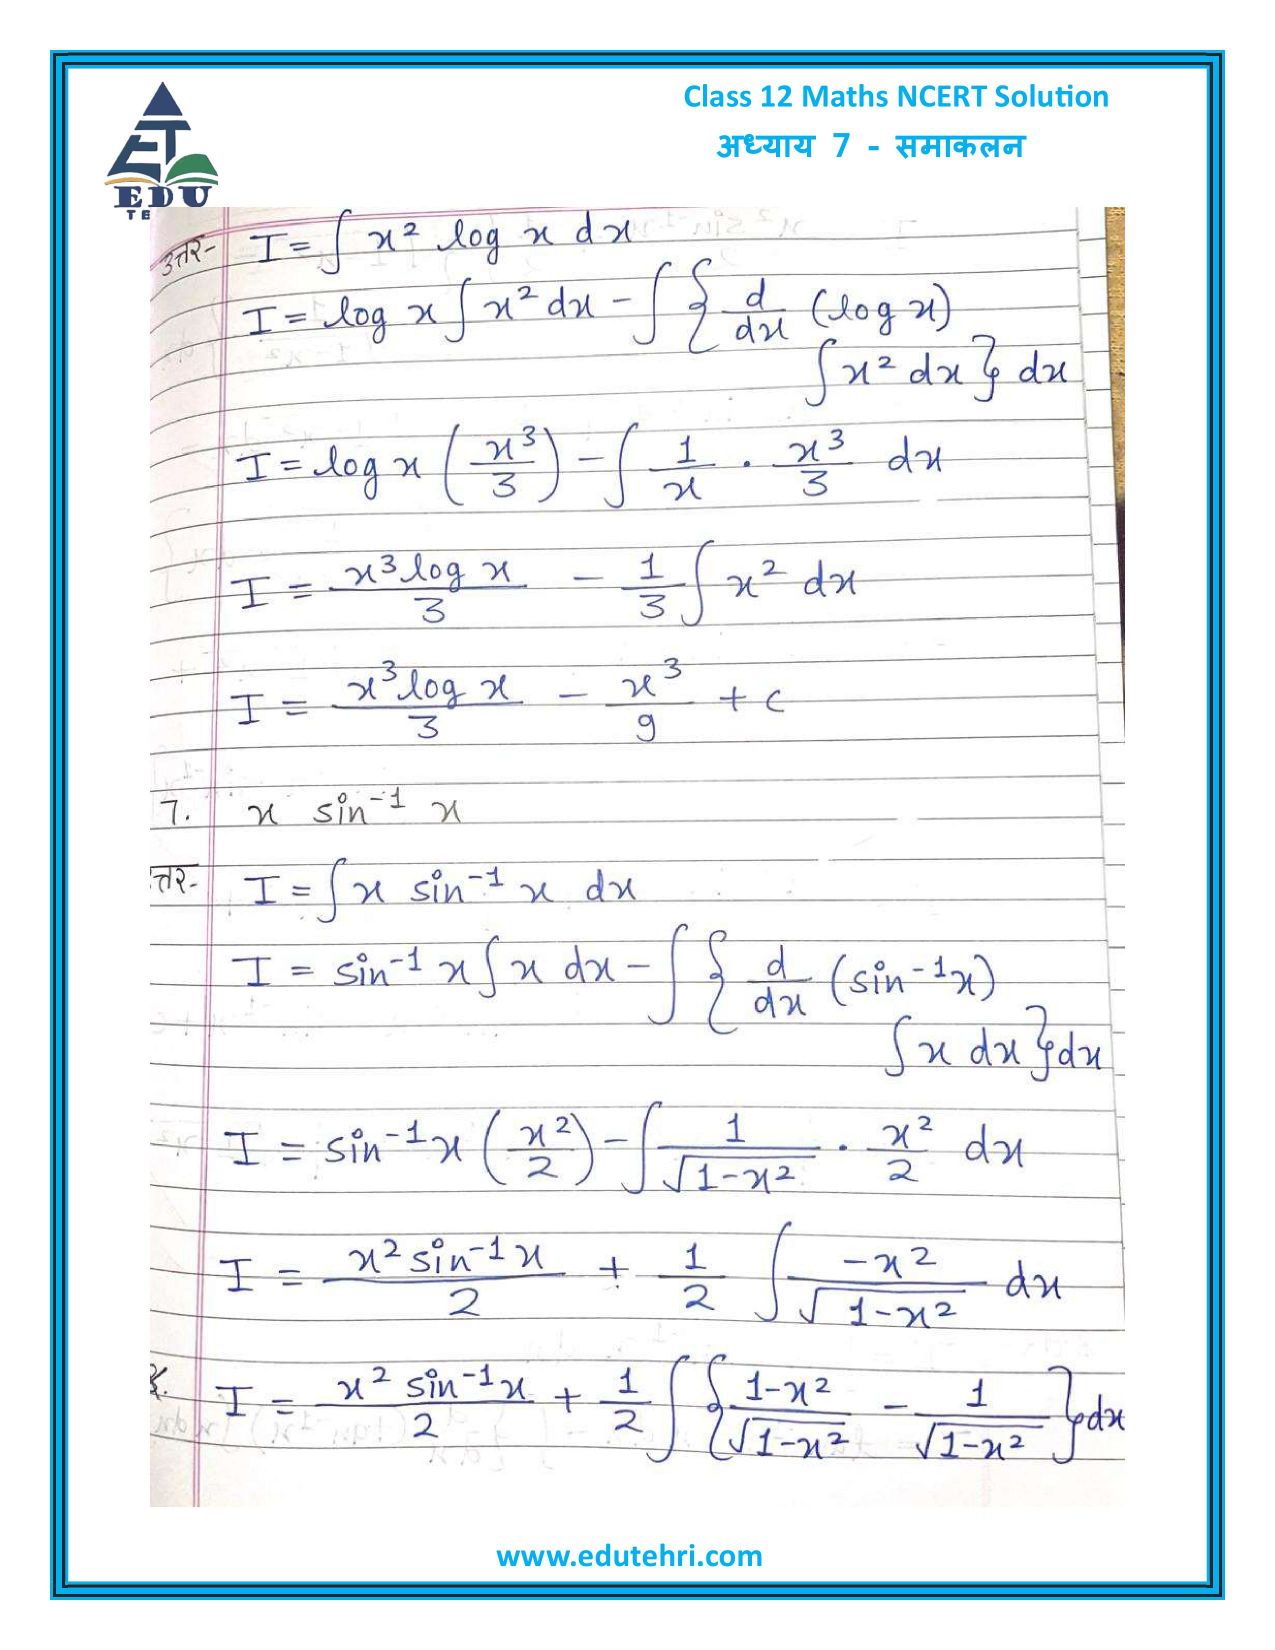 Class 12 Maths NCERT Solution
अध्याय 7 - समाकलन
EDU
TE
उत्तर- I = ∫ x² log x dx
I = log x ∫ x² dx - ∫ { d/dx (log x)
∫ x² dx } dx
I = log x (x³/3) - ∫ 1/x · x³/3 dx
I = x³ log x/3 - 1/3 ∫ x² dx
I = x³ log x/3 - x³/9 + c
7. x sin⁻¹ x
त्तर- I = ∫ x sin⁻¹ x dx
I = sin⁻¹ x ∫ x dx - ∫ { d/dx (sin⁻¹x)
∫ x dx } dx
I = sin⁻¹x (x²/2) - ∫ 1/√(1-x²) · x²/2 dx
I = x² sin⁻¹x/2 + 1/2 ∫ -x²/√(1-x²) dx
I = x² sin⁻¹x/2 + 1/2 ∫ { (1-x²)/√(1-x²) - 1/√(1-x²) } dx
www.edutehri.com